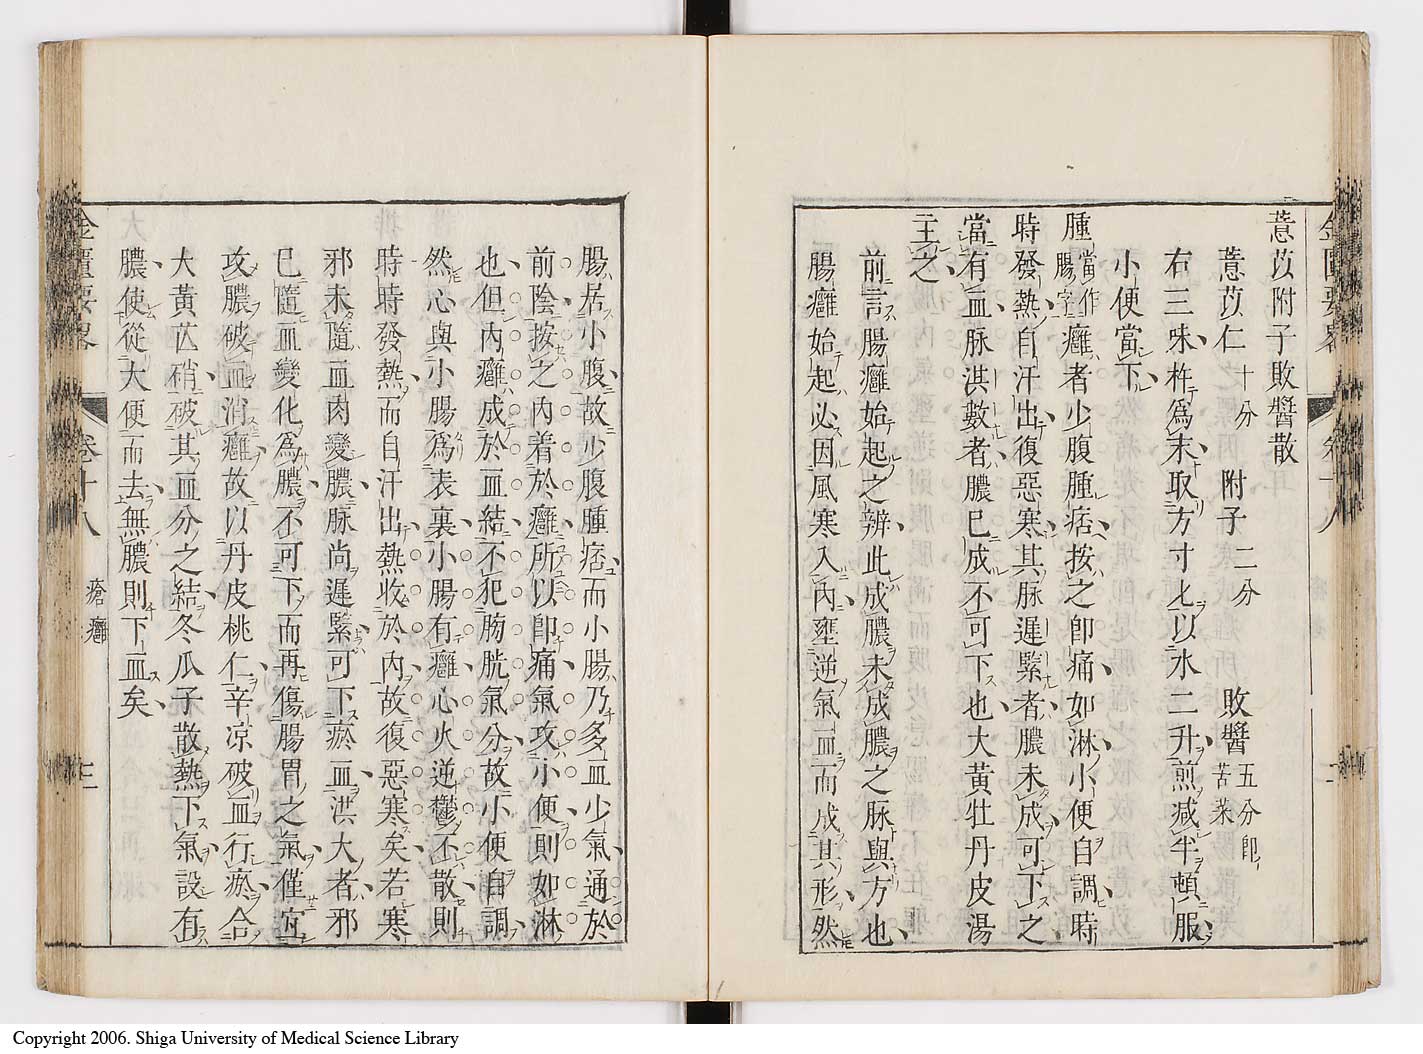 薏苡附子敗醬散
薏苡仁十分 附子二分 敗醬五分即苦菜
右三味杵爲末取方寸匕以水二升煎减半頓服
小便當下
腫當作腸字癰者少腹腫痞按之即痛如淋小便自調時
時發熱自汗出復惡寒其脉遲緊者膿未成可下之
當有血脉洪數者膿已成不可下也大黃牡丹皮湯
主之
前言腸癰始起之辨此成膿未成膿之脉與方也
腸癰始起必因風寒入內壅逆氣血而成其形然
腸居小腹故少腹腫痞而小腸乃多血少氣通於
前陰按之內着於癰所以即痛氣攻小便則如淋
也但內癰成於血結不犯胸胱氣分故小便自調
然心與小腸爲表裏小腸有癰心火逆鬱不散則
時時發熱而自汗出熱收於內故復惡寒矣若寒
邪未隨血肉變膿脉尚遲緊可下瘀血洪大者邪
已隨血變化為膿不可下而再傷腸胃之氣僅宜
攻膿破血消癰故以丹皮桃仁辛凉破血行瘀合
大黃芒硝破其血分之結冬瓜子散熱下氣設有
膿使從大便而去無膿則下血矣
金匱要畧 卷十八 瘡癰 三
Copyright 2006. Shiga University of Medical Science Library